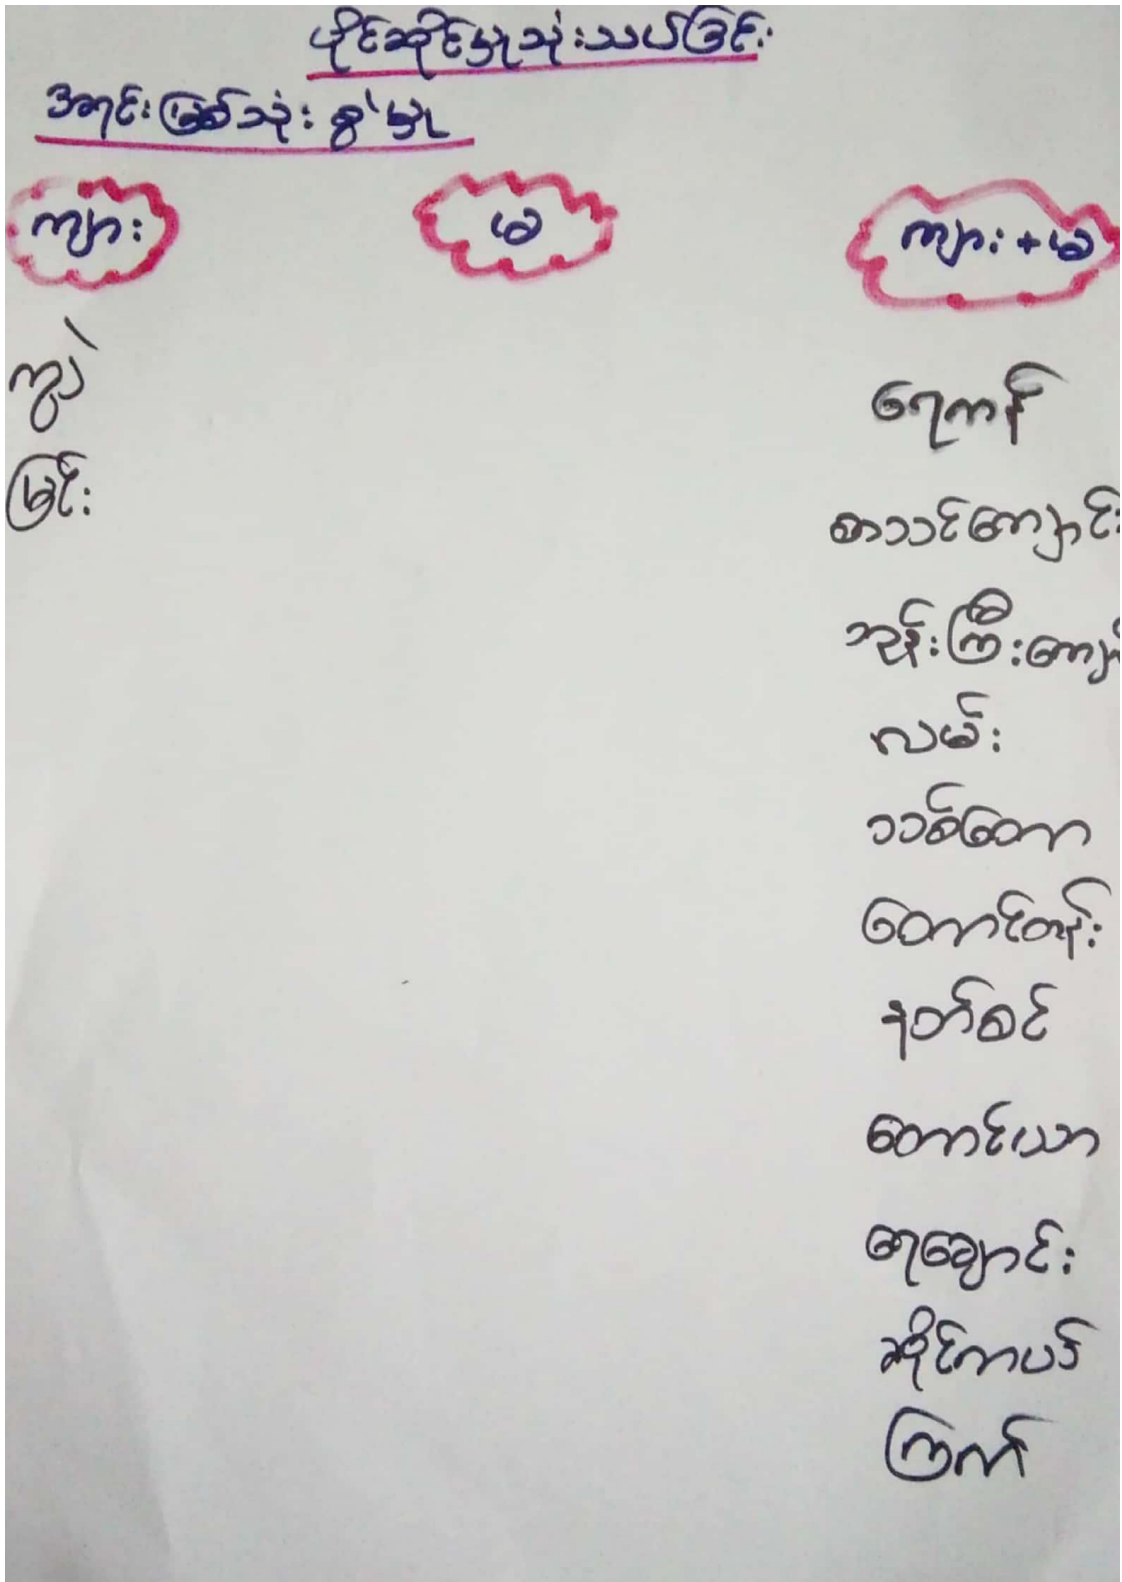 ပိုင်ဆိုင်မှုသုံးသပ်ခြင်း
အရင်းမြစ်သုံးစွဲမှု
ကျား မ ကျား+မ
ကျွဲ ရေကန်
မြင်း စာသင်ကျောင်း
ဘုန်းကြီးကျော
လမ်း
သစ်တော
တောင်တန်း
နတ်စင်
တောင်ယာ
ရေချောင်း
ဆိုင်ကယ်
ကြက်